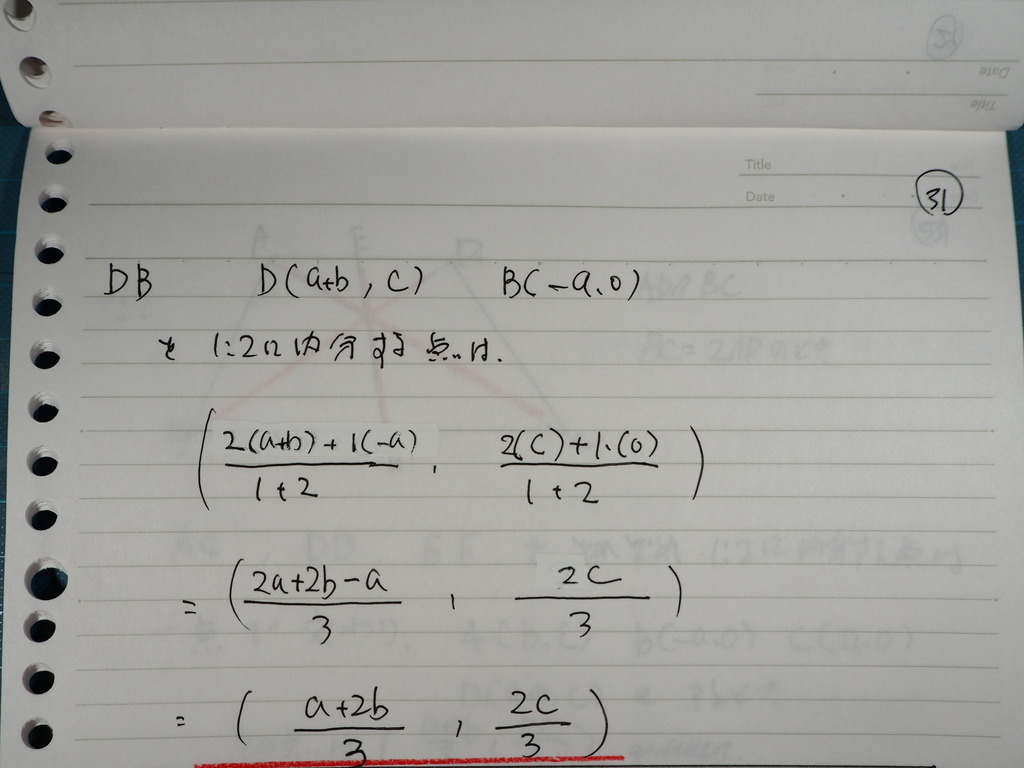 Date
Title
Title
Date
31
DB D(a+b, c) B(-a.0)
を 1:2に内分する点は.
( 2(a+b)+1(-a) / 1+2 , 2(c)+1.(0) / 1+2 )
= ( 2a+2b-a / 3 , 2c / 3 )
= ( a+2b / 3 , 2c / 3 )